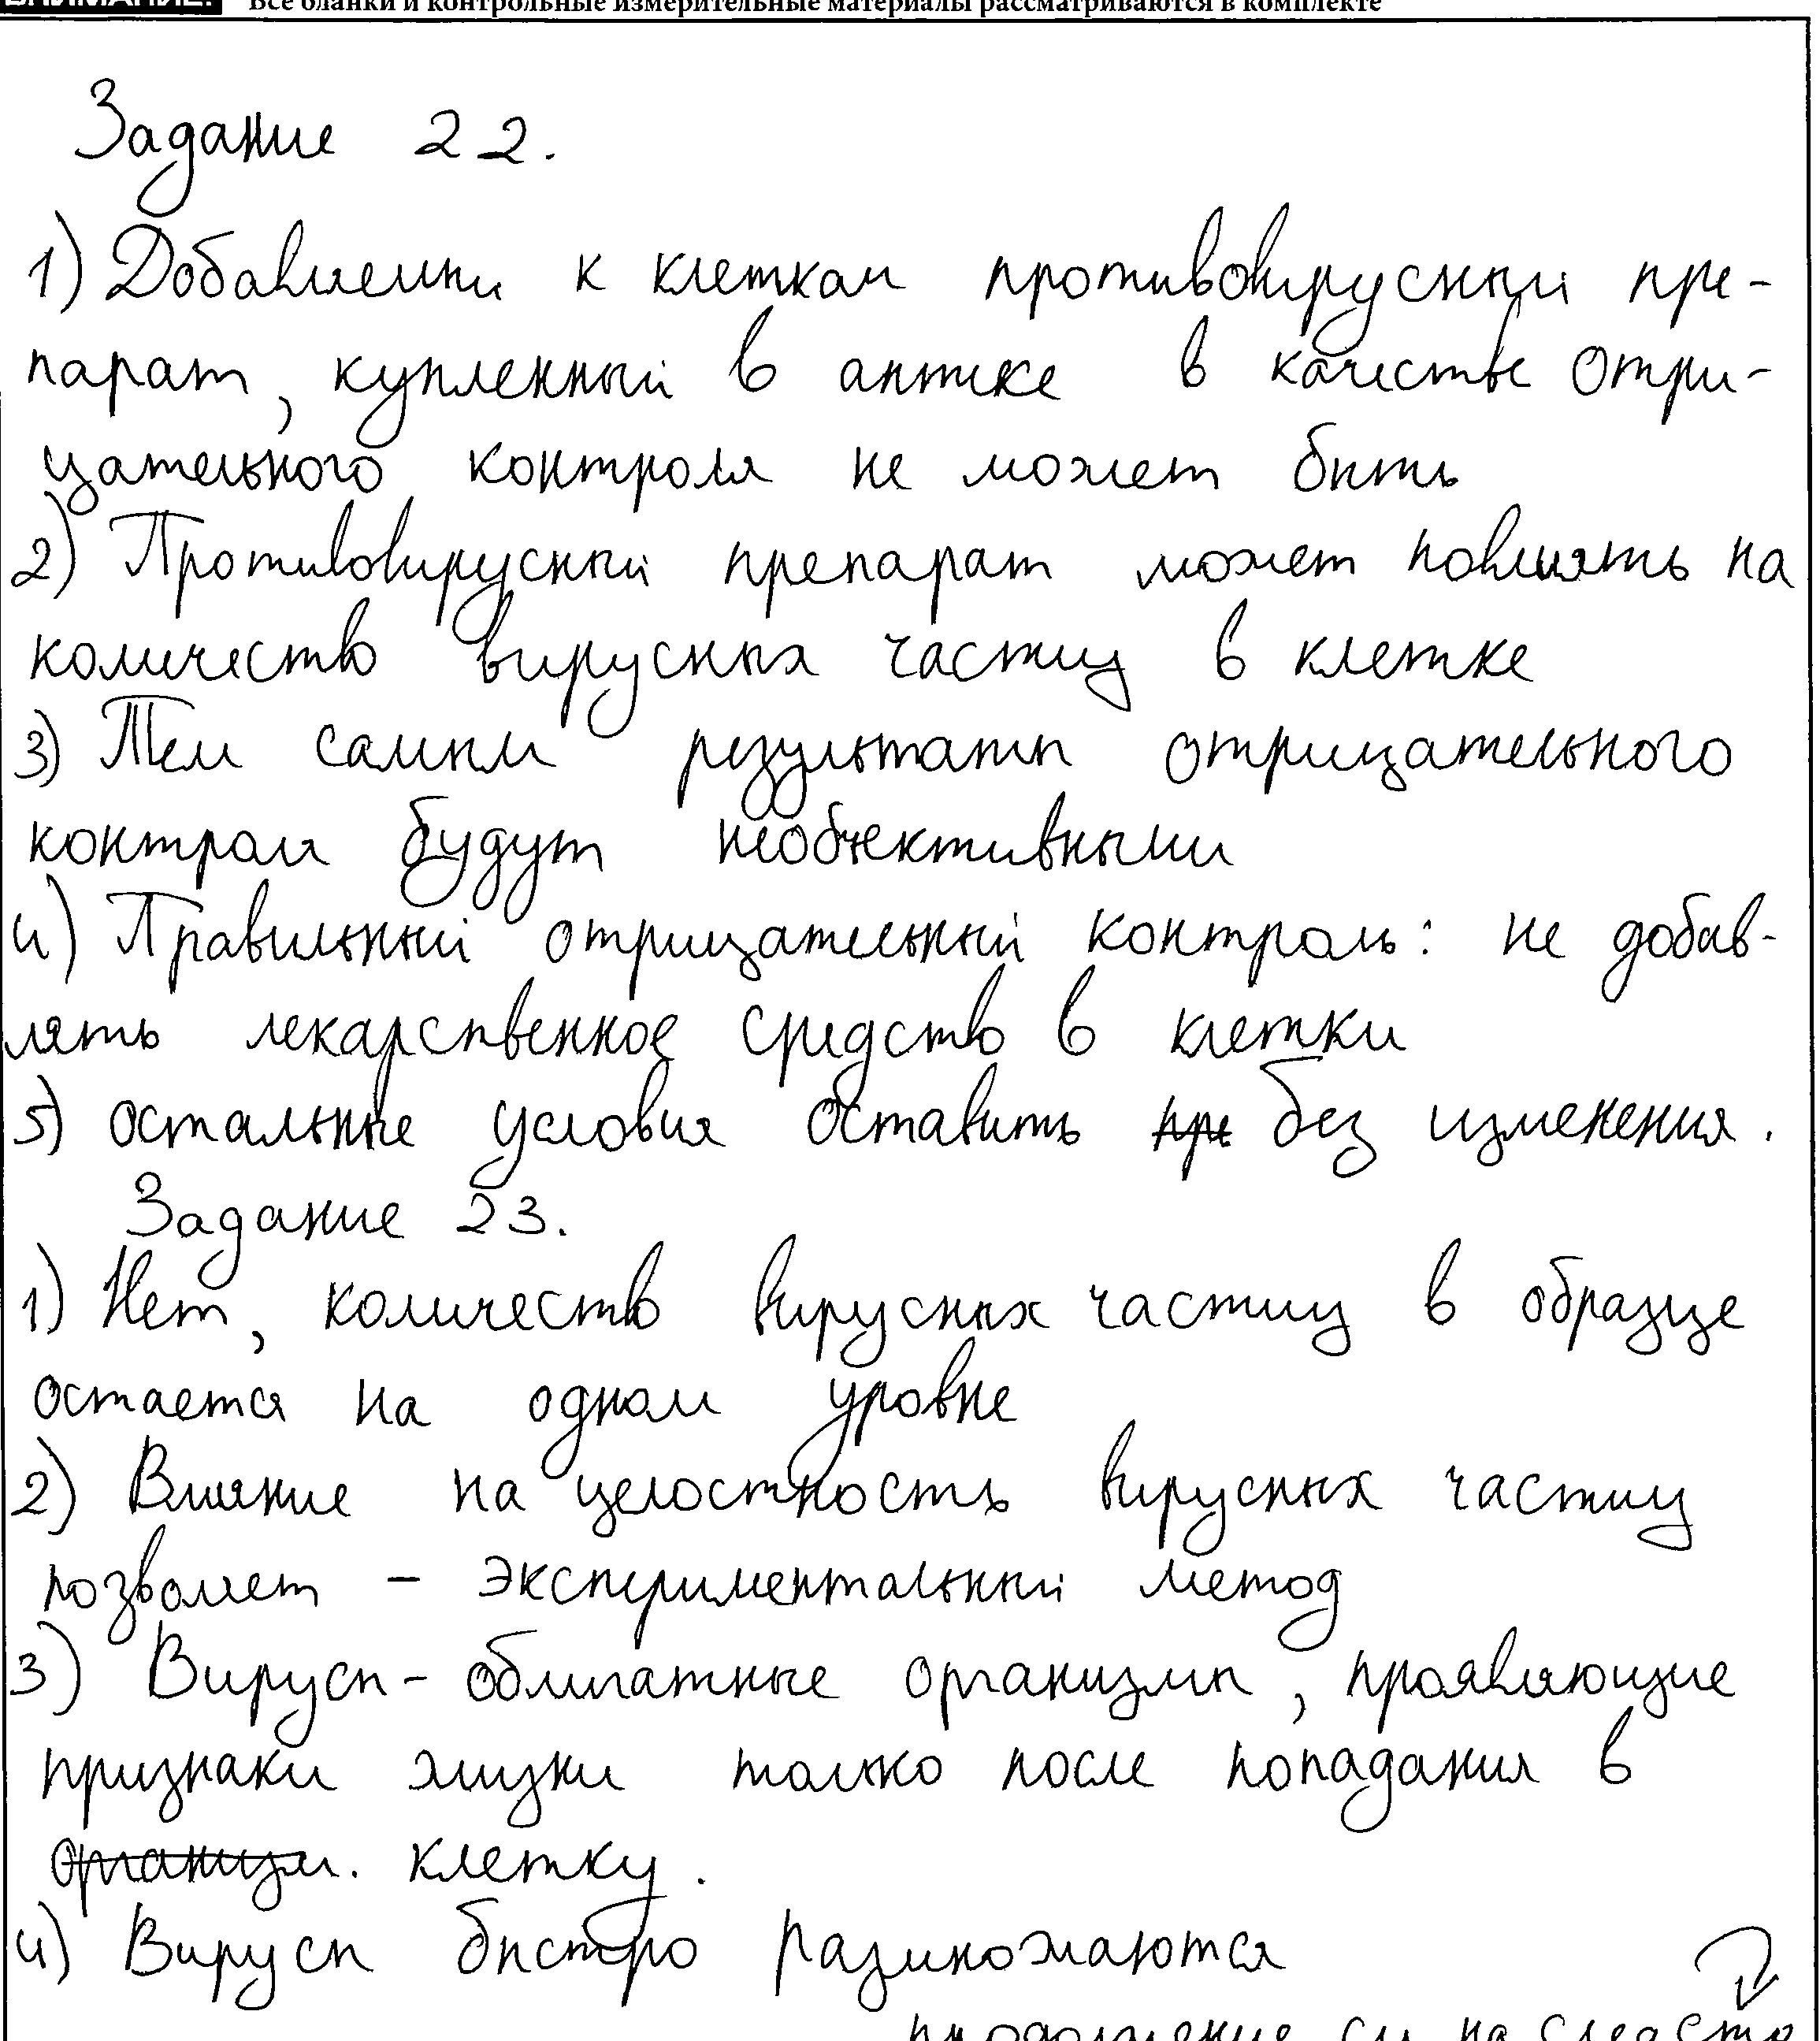 ВНИМАНИЕ! Все бланки и контрольные измерительные материалы рассматриваются в комплекте
Задание 22.
1) Добавляемый к клеткам противовирусный пре-
парат, купленный в аптеке в качестве отри-
цательного контроля не может быть
2) Противовирусный препарат может повлиять на
количество вирусных частиц в клетке
3) Тем самым результаты отрицательного
контроля будут необъективными
4) Правильный отрицательный контроль: не добав-
лять лекарственное средство в клетки
5) остальные условия оставить пре без изменения.
Задание 23.
1) Нет, количество вирусных частиц в образце
остается на одном уровне
2) Влияние на целостность вирусных частиц
позволяет - экспериментальный метод
3) Вирусы - облигатные организмы, проявляющие
признаки жизни только после попадания в
организм. клетку.
4) Вирусы быстро размножаются
продолжение см на след стр